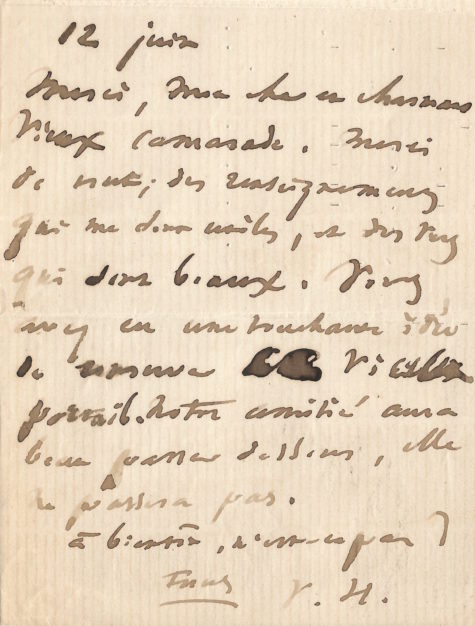 12 juin
Merci, mon cher et charmant
Vieux camarade. Merci
de tout; des renseignements
qui me sont utiles, et des vers
qui sont beaux. Vous
avez eu une touchante idée
de
portail. Notre amitié aura
beau passer dessous, elle
ne passera pas.
à bientôt, n'est-ce pas?
V. H.